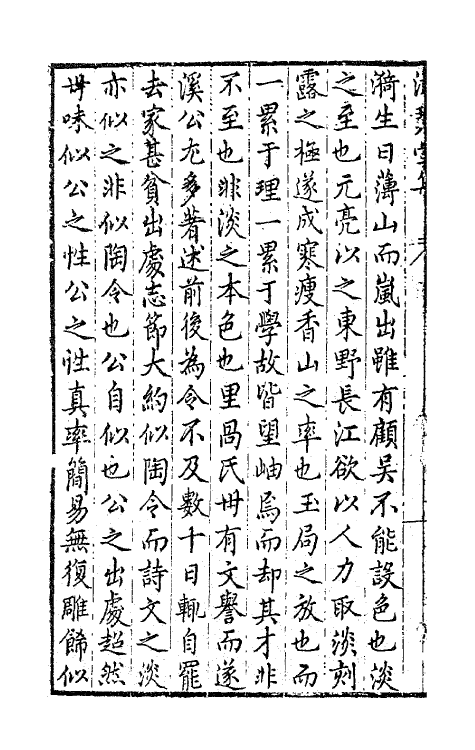 漪生日薄山而嵐出雖有顧吳不能設色也淡
之至也元亮以之東野長江欲以人力取淡刻
露之極遂成寒瘦香山之率也玉局之放也而
一累于理一累于學故皆望岫焉而却其才非
不至也非淡之本色也里咼氏世有文譽而遂
溪公尤多著述前後為令不及數十日輒自罷
去家甚貧出處志節大約似陶令而詩文之淡
亦似之非似陶令也公自似也公之出處超然
毋味似公之性公之性真率簡易無復雕飾似